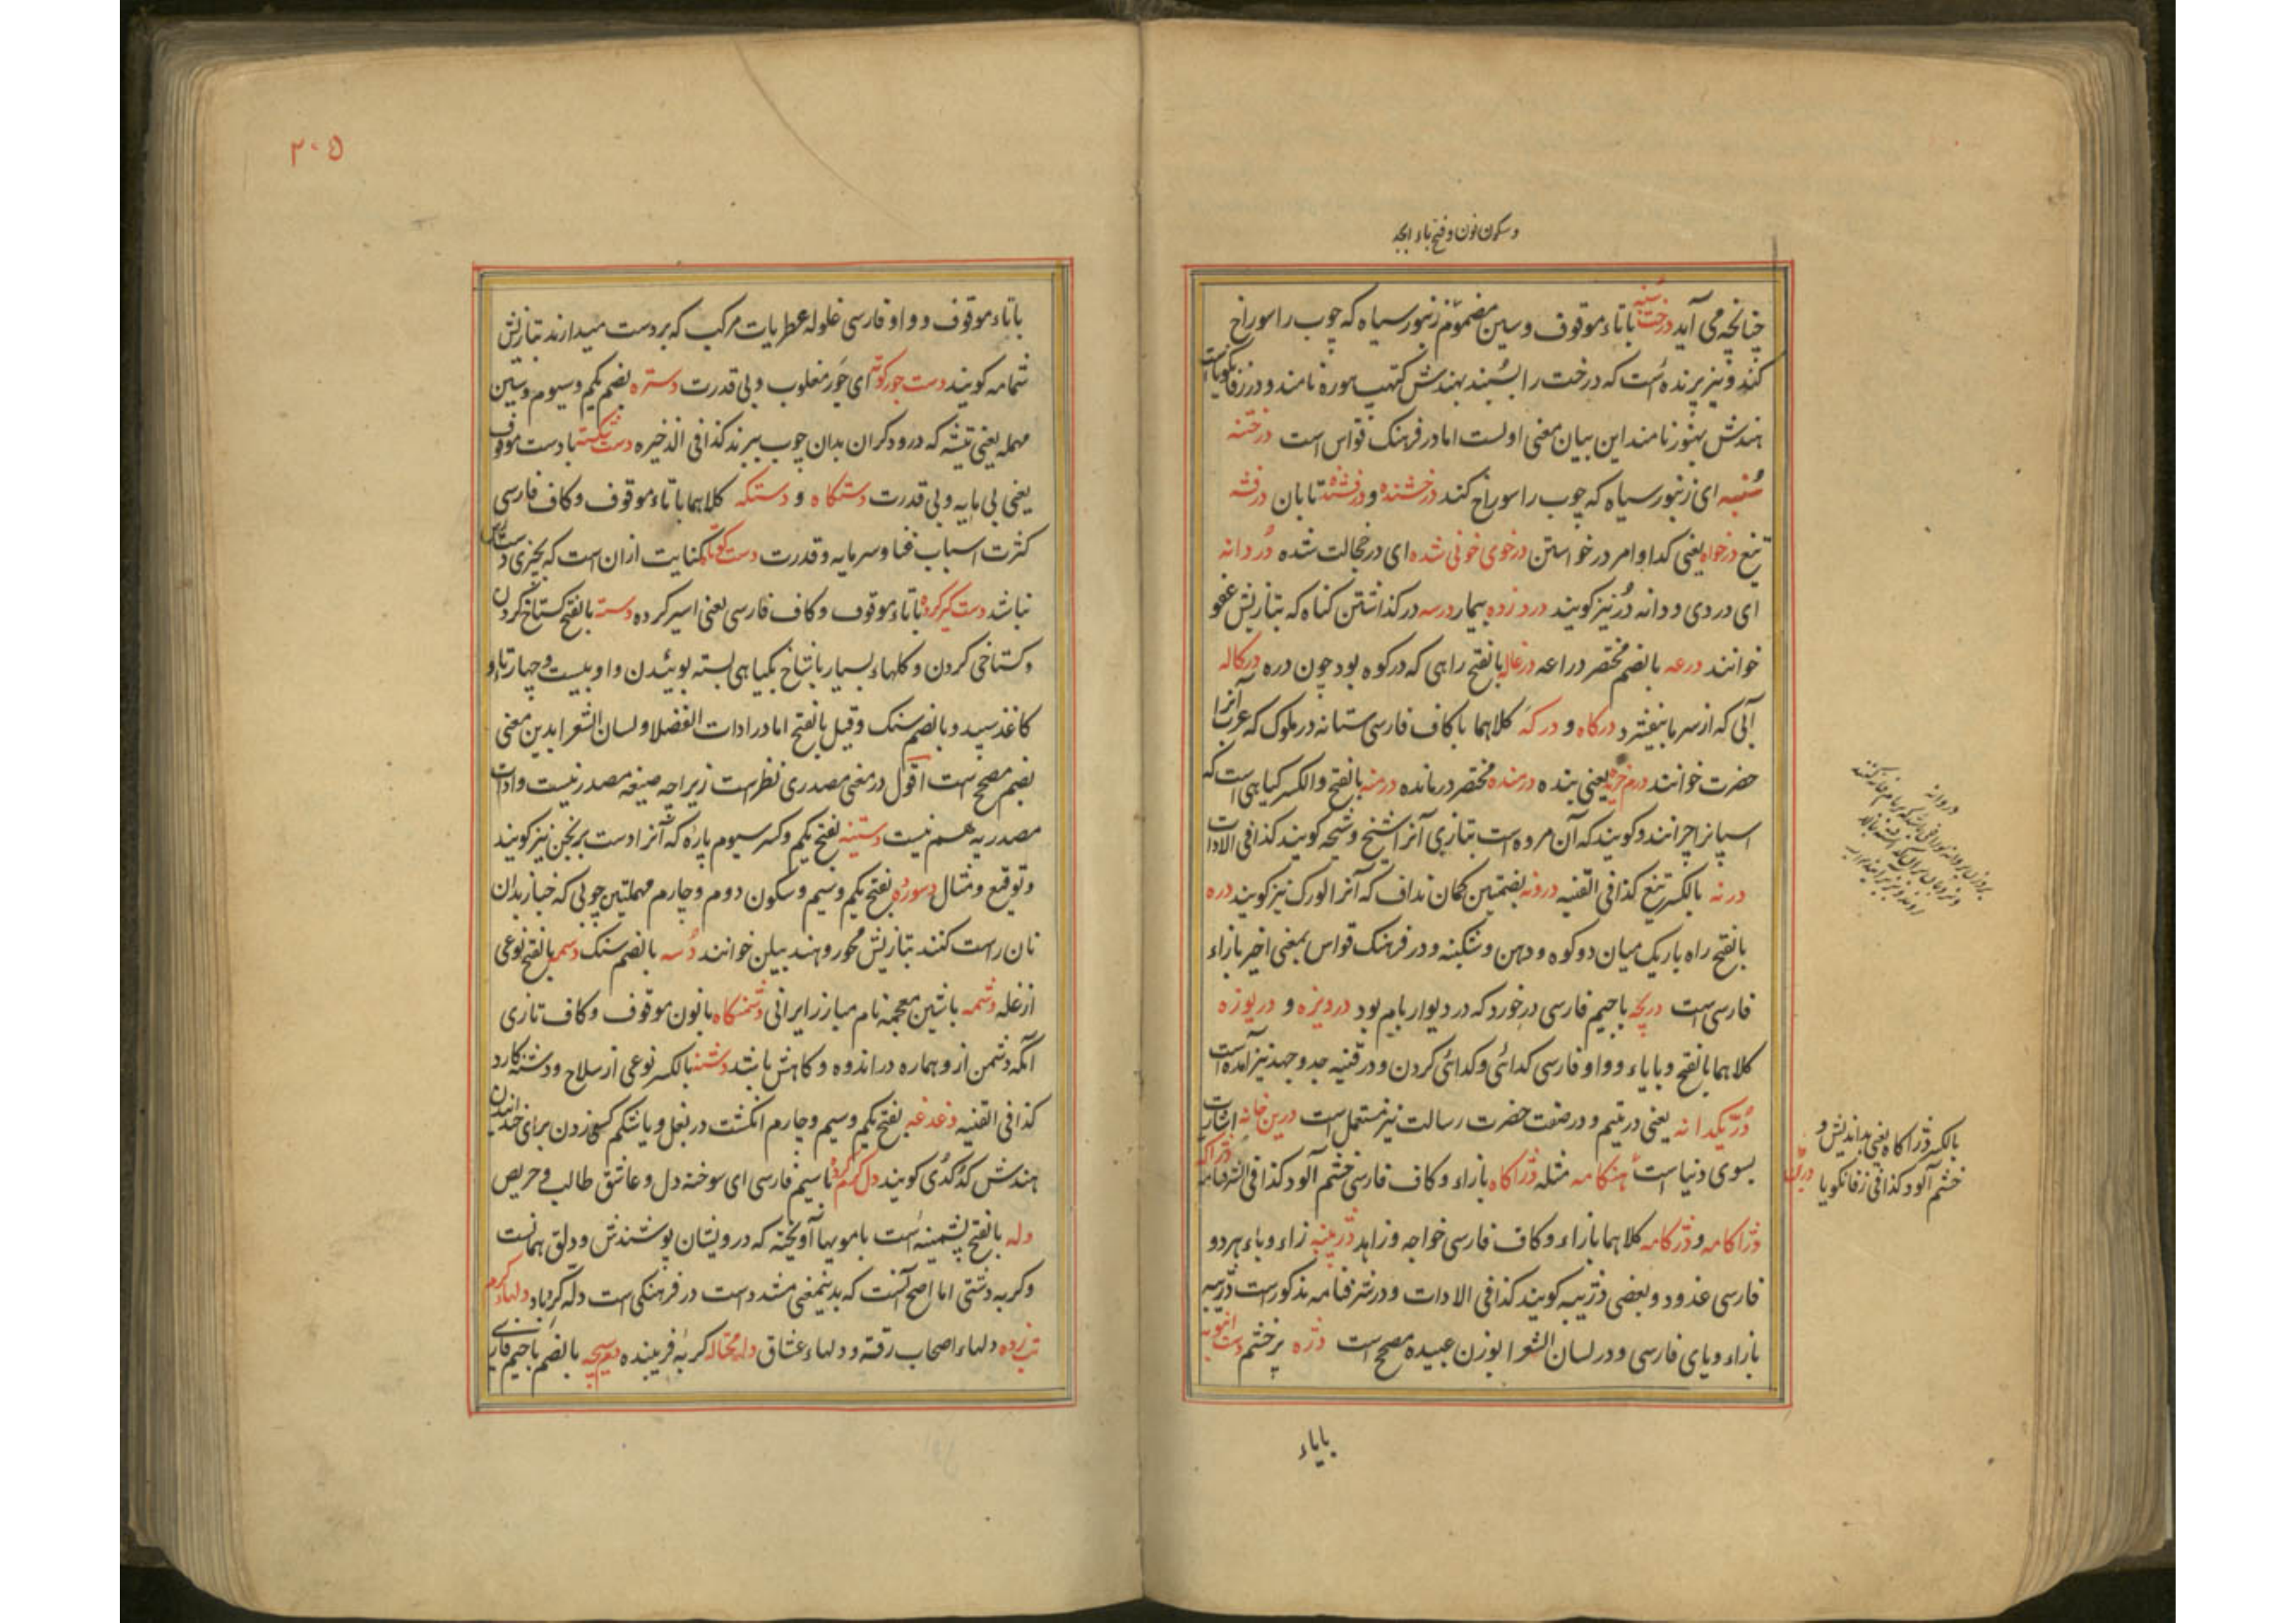 وسکون نون و فتح باء ابجد
چنانچه می آید درخت سنبه باتاء موقوف و سین مضموم زنبور سیاه که چوب را سوراخ
کند و نیز پرنده است که درخت را بسنبد بهندش نامند و در زفانکویاست
هندش بهنور نامند این بیان معنی اولست اما در فرهنک قواس است درختنه
سنبه ای زنبور سیاه که چوب را سوراخ کند درخشنده و درفشنده تابان درفشه
تیغ درخواه یعنی کدا و امر درخواستن درخوی خونی شده ای در خجالت شده دردانه
ای دردی و دانه در نیز کویند درد زده بیمار درسه درکذاشتن کناه که بتازیش عفو
خوانند درعه بالضم مختصر دراعه درغاله بالفتح راهی که در کوه بود چون دره درکاله
آبی که از سرما بیفشرد درکاه و درکه کلاهما با کاف فارسی ستانه در ملوک که عرب آنرا
حضرت خوانند درم خرید یعنی بنده درمنده مختصر درمانده درمنه بالفتح والکسر کیاهی است که
اسپانرا چرانند و کویند که آن مروه است بتازی آنرا شیخ و شیحه کویند کذا فی الادات
درنه بالکسر تیغ کذا فی القنیه درونه بضمتین کمان نداف که آنرا لورک نیز کویند دره
بالفتح راه باریک میان دو کوه و دهن و شکنبه و در فرهنک قواس بمعنی اخیر بازاء
فارسی است دریچه باجیم فارسی در خورد که در دیوار بام بود درویزه و دریوزه
کلاهما بالفتح و بایاء و واو فارسی کدائی و کدائی کردن و در قنیه جد و جهد نیز آمده است
در یکدانه یعنی در یتیم و در صفت حضرت رسالت نیز مستعمل است درین خانه اشارت
بسوی دنیا است هنکامه مثله دژاکاه بازاء و کاف فارسی خشم آلود کذا فی الشرفنامه
دژاکامه و دژکامه کلاهما بازاء و کاف فارسی خواجه و زاهد دژپیه زاء و باء هر دو
فارسی غدود و بعضی دژپیه کویند کذا فی الادات و در شرفنامه مذکورست دژپیه
بازاء و یای فارسی و در لسان الشعرا بوزن عبیده مصحح است دژه پر خشم دست انبویه
بالکسر دژاکاه یعنی بداندیش و
خشم آلود کذا فی زفانکویا
دروانه
بایاء
۲۰۵
باتاء موقوف و واو فارسی غلوله عطریات مرکب که بر دست میدارند بتازیش
شمامه کویند دست جور کوته ای جور مغلوب و بی قدرت دستره بضم یکم و سیوم و سین
مهمله یعنی تیشه که درودکران بدان چوب ببرند کذا فی الذخیره دست شکسته بادست موقوف
یعنی بی مایه و بی قدرت دستکاه و دستکه کلاهما باتاء موقوف و کاف فارسی
کثرت اسباب غنا و سرمایه و قدرت دست کوتاه کنایت از ان است که بچیزی دست رس
نباشد دست کیر کرده باتاء موقوف و کاف فارسی یعنی اسیر کرده دسته بالفتح کستاخ کردن
و کستاخی کردن و کلهاء بسیار باشاخ بکیاهی بسته بوئیدن و او بیست و چهار تاء و
کاغذ سپید و بالضم سنک و قیل بالفتح اما در ادات الفضلا و لسان الشعرا بدین معنی
بضم مصحح است اقول در معنی مصدری نظر است زیرا چه صیغه مصدر نیست و ادات
مصدریه هم نیست دستینه بفتح یکم و کسر سیوم یاره که آنرا دست برنجن نیز کویند
و توقیع و مثال دسوره بفتح یکم و سیم و سکون دوم و چارم مهملتین چوبی که خباز بدان
نان راست کنند بتازیش محور و هند بیلن خوانند دسه بالضم سنک دسمه بالفتح نوعی
از غله دشمه باشین معجمه نام مبارز ایرانی دشمنکاه بانون موقوف و کاف تازی
آنکه دشمن از و هماره در اندوه و کاهش باشد دشنه بالکسر نوعی از سلاح و دشنه کارد
کذا فی القنیه دغدغه بفتح یکم و سیم و چارم انکشت در بغل و یا شکم کسی زدن برای خندانیدن
هندش کدکدی کویند دل کرم کرده باسیم فارسی ای سوخته دل و عاشق طالب و حریص
دله بالفتح پشمینه است باموییها آویخته که درویشان پوشندش و دلق همانست
و کربه دشتی اما اصح آنست که بدینمعنی مشدد است در فرهنکی است دله کرباد دلهاء کرم
تب زده دلهاء اصحاب رقت و دلهاء عشاق دله محتاله کربه فریبنده بالضم باجیم فارسی